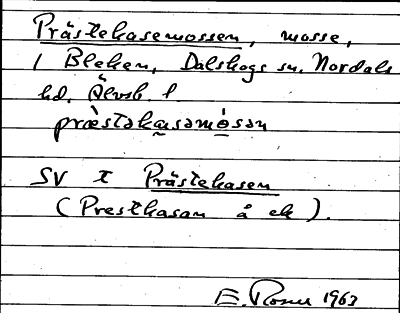 Prästekasemossen, mosse,
i Bleken, Dalskogs sn. Nordals
hd. Älvsb. l
præ̀stəka̱səmɷ́sən
SV I Prästekasen
(Prestkasan å ek).
E. Rosen 1963